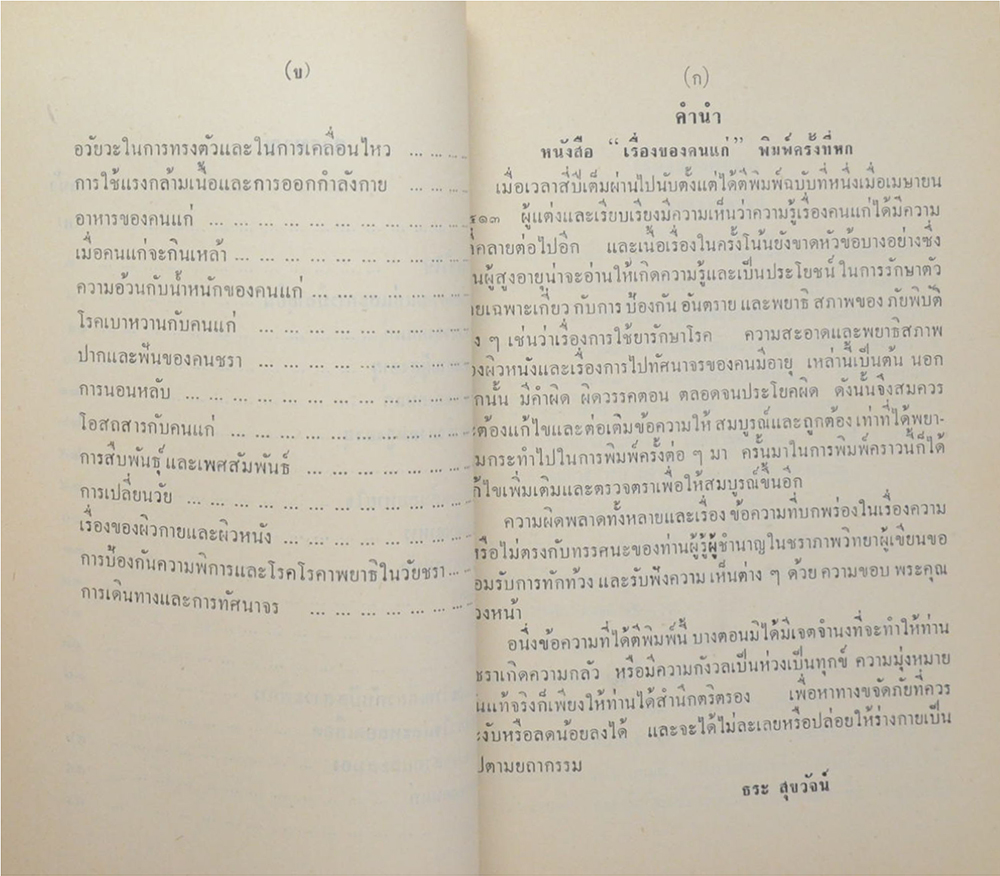 (บ)
อวัยวะในการทรงตัวและในการเคลื่อนไหว ... ... ...
การใช้แรงกล้ามเนื้อและการออกกำลังกาย ... ... ...
อาหารของคนแก่ ... ... ... ... ... ... ... ...
เมื่อคนแก่จะกินเหล้า ... ... ... ... ... ... ...
ความอ้วนกับน้ำหนักของคนแก่ ... ... ... ... ...
โรคเบาหวานกับคนแก่ ... ... ... ... ... ... ...
ปากและฟันของคนชรา ... ... ... ... ... ... ...
การนอนหลับ ... ... ... ... ... ... ... ... ...
โอสถสารกับคนแก่ ... ... ... ... ... ... ... ...
การสืบพันธุ์และเพศสัมพันธ์ ... ... ... ... ... ...
การเปลี่ยนวัย ... ... ... ... ... ... ... ... ...
เรื่องของผิวกายและผิวหนัง ... ... ... ... ... ...
การป้องกันความพิการและโรคโรคาพยาธิในวัยชรา ... ...
การเดินทางและการทัศนาจร ... ... ... ... ... ...
(ก)
คำนำ
หนังสือ “เรื่องของคนแก่” พิมพ์ครั้งที่หก
เมื่อเวลาสี่ปีเต็มผ่านไปนับตั้งแต่ได้ตีพิมพ์ฉบับที่หนึ่งเมื่อเมษายน
๕๑๓ ผู้แต่งและเรียบเรียงมีความเห็นว่าความรู้เรื่องคนแก่ได้มีความ
คลี่คลายต่อไปอีก และเนื้อเรื่องในครั้งโน้นยังขาดหัวข้อบางอย่างซึ่ง
นผู้สูงอายุน่าจะอ่านให้เกิดความรู้และเป็นประโยชน์ ในการรักษาตัว
ยเฉพาะเกี่ยว กับการ ป้องกัน อันตราย และพยาธิ สภาพของ ภัยพิบัติ
ง ๆ เช่นว่าเรื่องการใช้ยารักษาโรค ความสะอาดและพยาธิสภาพ
งผิวหนังและเรื่องการไปทัศนาจรของคนมีอายุ เหล่านี้เป็นต้น นอก
กนั้น มีคำผิด ผิดวรรคตอน ตลอดจนประโยคผิด ดังนั้นจึงสมควร
ะต้องแก้ไขและต่อเติมข้อความให้ สมบูรณ์และถูกต้อง เท่าที่ได้พยา-
มกระทำไปในการพิมพ์ครั้งต่อ ๆ มา ครั้นมาในการพิมพ์คราวนี้ก็ได้
ก้ไขเพิ่มเติมและตรวจตราเพื่อให้สมบูรณ์ขึ้นอีก
ความผิดพลาดทั้งหลายและเรื่อง ข้อความที่บกพร่องในเรื่องความ
หรือไม่ตรงกับทรรศนะของท่านผู้รู้ผู้ชำนาญในชราภาพวิทยาผู้เขียนขอ
อมรับการทักท้วง และรับฟังความ เห็นต่าง ๆ ด้วย ความขอบ พระคุณ
วงหน้า
อนึ่งข้อความที่ได้ตีพิมพ์นี้ บางตอนมิได้มีเจตจำนงที่จะทำให้ท่าน
ชราเกิดความกลัว หรือมีความกังวลเป็นห่วงเป็นทุกข์ ความมุ่งหมาย
นแท้จริงก็เพียงให้ท่านได้สำนึกตริตรอง เพื่อหาทางขจัดภัยที่ควร
ะงับหรือลดน้อยลงได้ และจะได้ไม่ละเลยหรือปล่อยให้ร่างกายเป็น
ปตามยถากรรม
ธระ สุขวัจน์